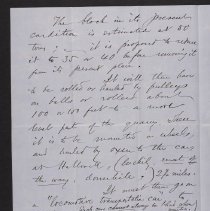 The block in its present
condition is estimated at 50
tons; — it is proposed to reduce
it to 35 or 40 before removing it
from its present place.
It will then have
to be rolled or hauled by pulleys
on balls or rollers about
100 or 101 feet to a more
level part of the quarry. Here
it is to be mounted on wheels,
and hauled by oxen to the cars
at Hallowell,
the way, downhill) 2½ miles.
It must then go on
a "locomotive transportation car," to